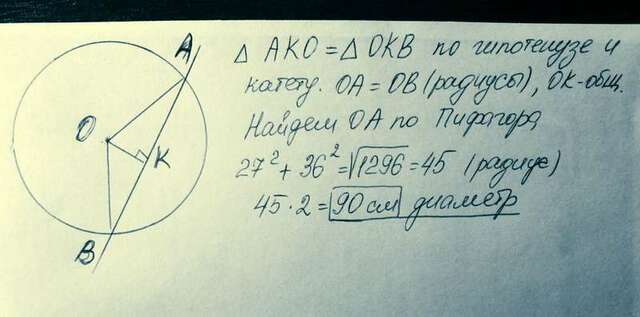 A
△ AKO = △ OKB по гипотенузе и
катету. OA = OB (радиусы), OK-общ.
O
Найдем OA по Пифагора
K
27² + 36² = √1296 = 45 (радиус)
45 · 2 = 90 см диаметр
B